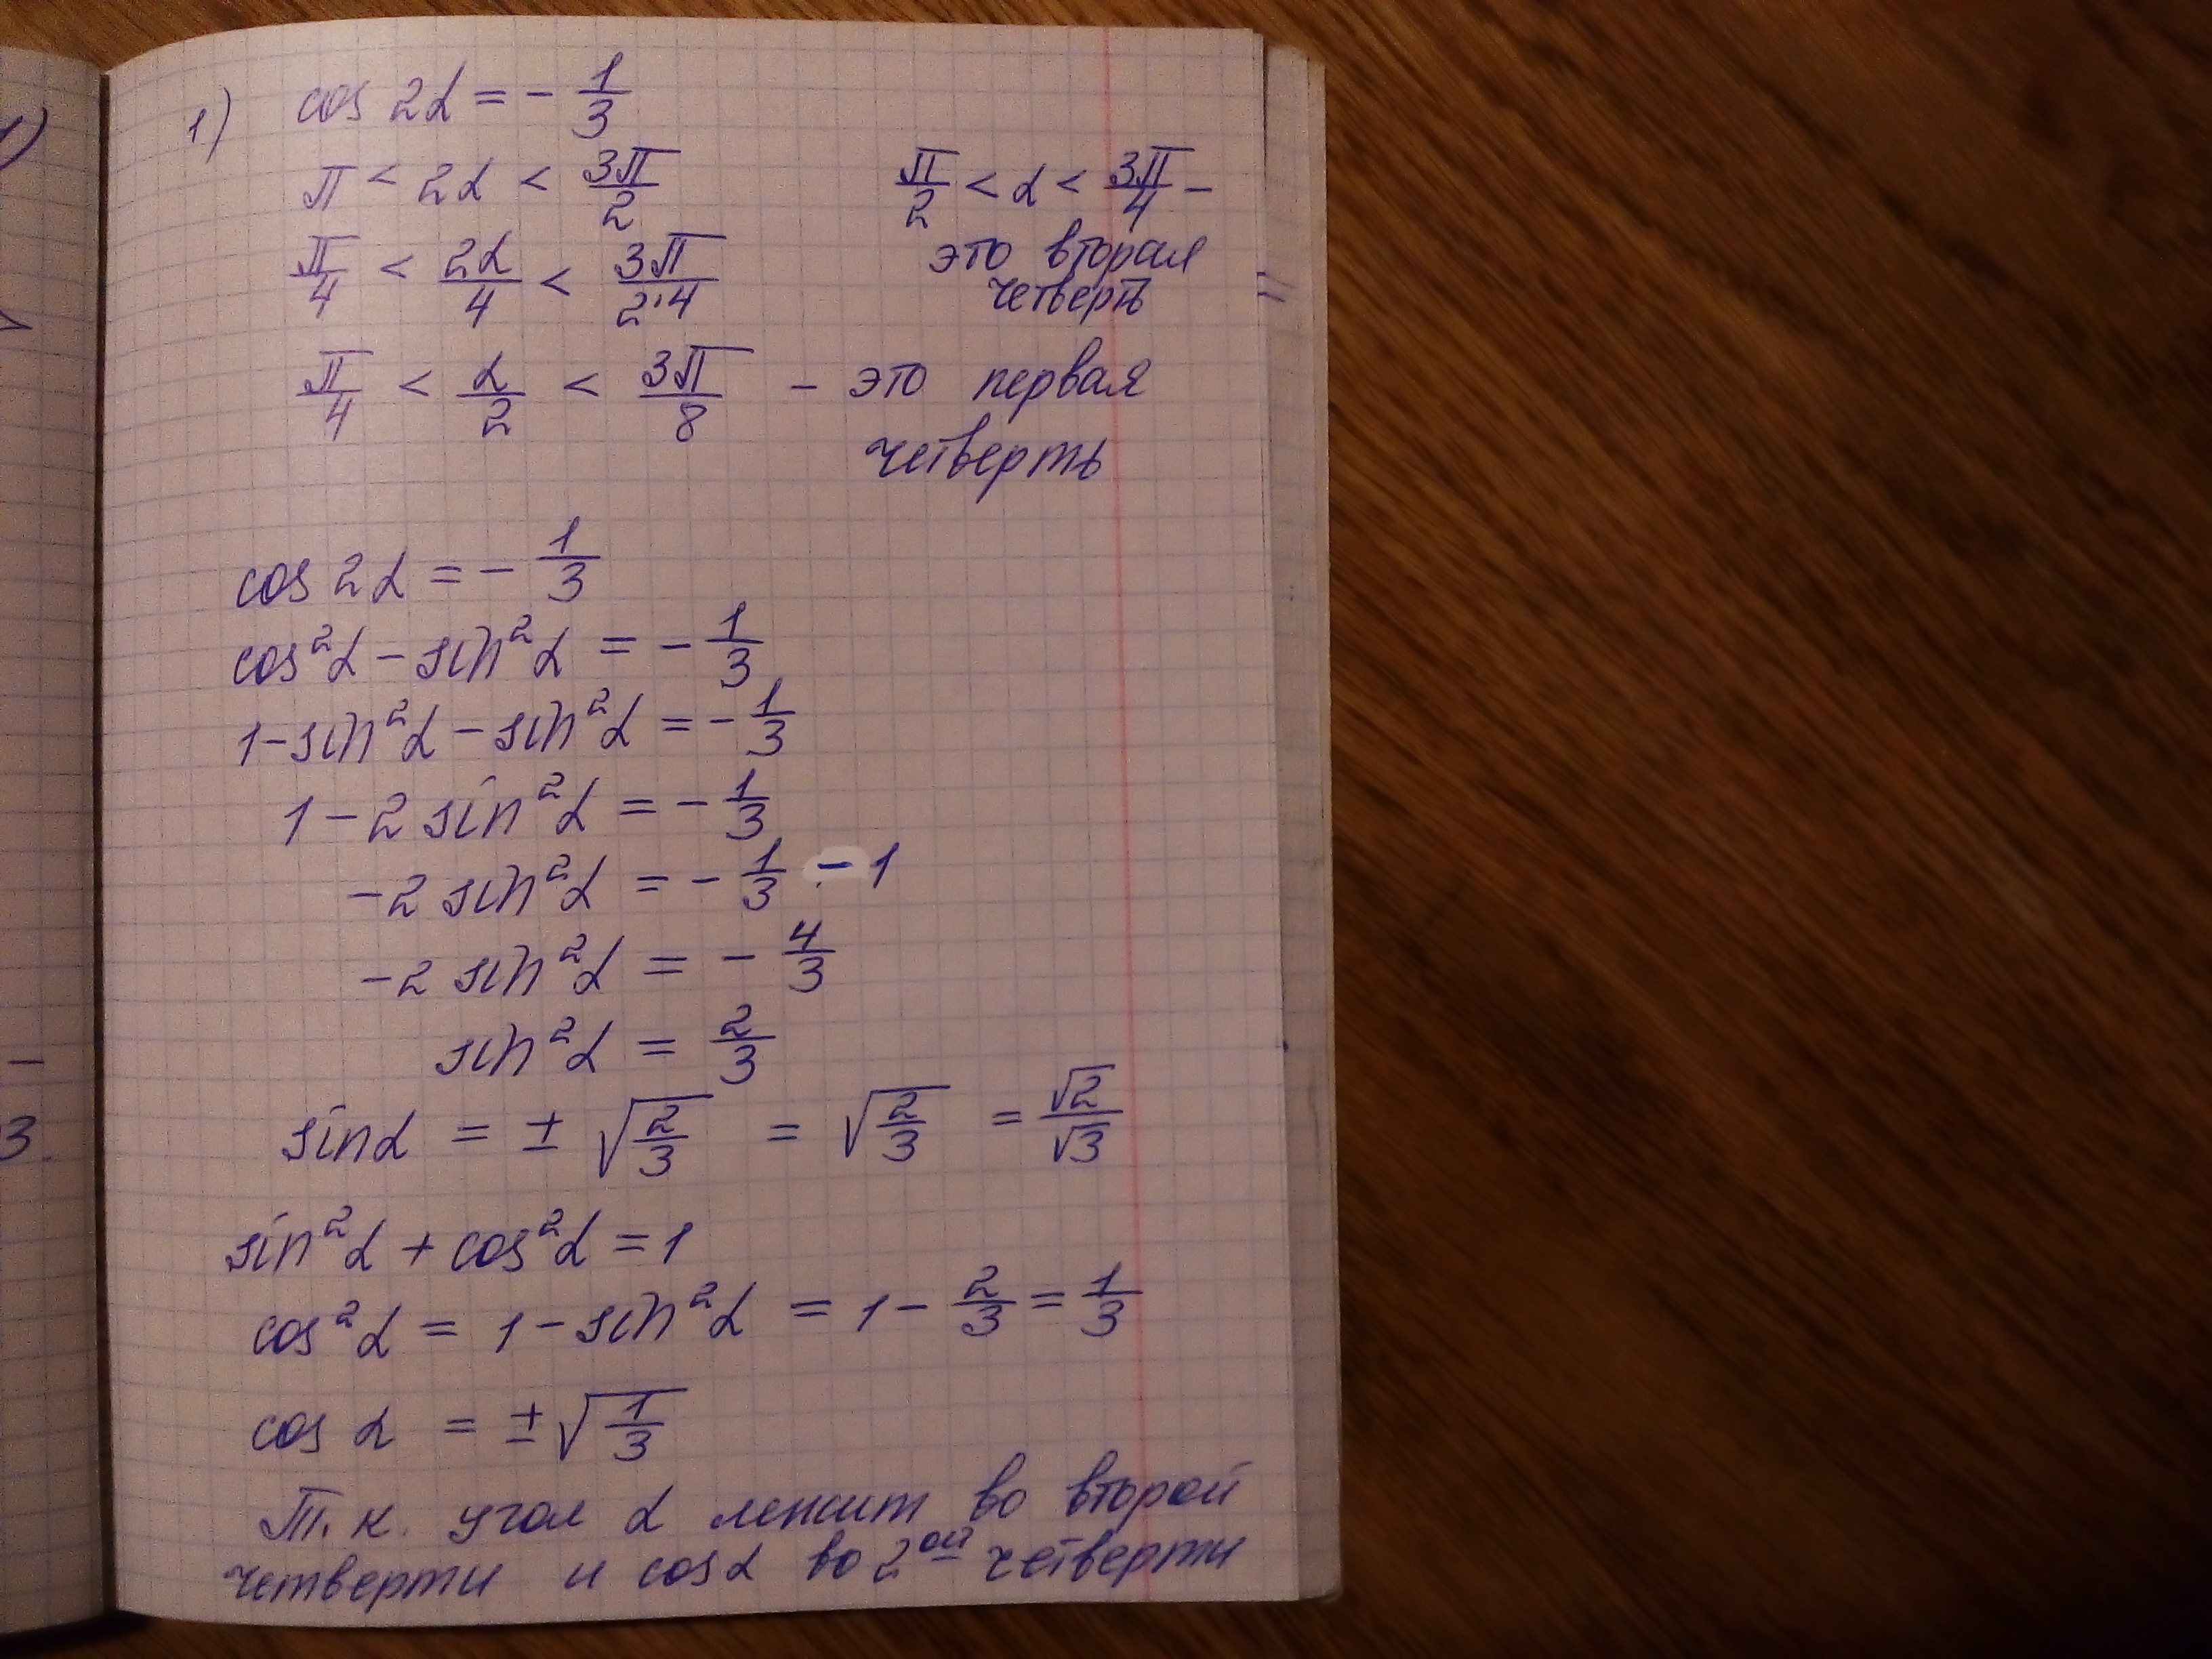 1) cos 2α = - 1/3
π < 2α < 3π/2
π/2 < α < 3π/4 -
это вторая
четверть
π/4 < 2α/4 < 3π/2·4
π/4 < α/2 < 3π/8 - это первая
четверть
cos 2α = - 1/3
cos²α - sin²α = - 1/3
1 - sin²α - sin²α = - 1/3
1 - 2 sin²α = - 1/3
-2 sin²α = - 1/3 - 1
-2 sin²α = - 4/3
sin²α = 2/3
sin α = ± √(2/3) = √(2/3) = √2/√3
sin²α + cos²α = 1
cos²α = 1 - sin²α = 1 - 2/3 = 1/3
cos α = ± √(1/3)
Т.к. угол α лежит во второй
четверти и cos α во 2ой четверти
1)
3.